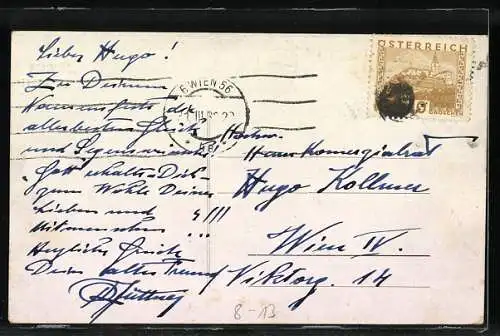 Lieber Hugo!
Zu Deinem
Namensfeste die
allerbesten Glück
und Segenswünsche
Gott erhalte Dich
zum Wohle Deiner
Lieben und
Mitmenschen !!!
Herzliche Grüße
Dein alter Freund
ÖSTERREICH
6 WIEN 56
Herrn Komerzialrat
Hugo Kollmer
Wien IV.
Viktorg. 14
8-13